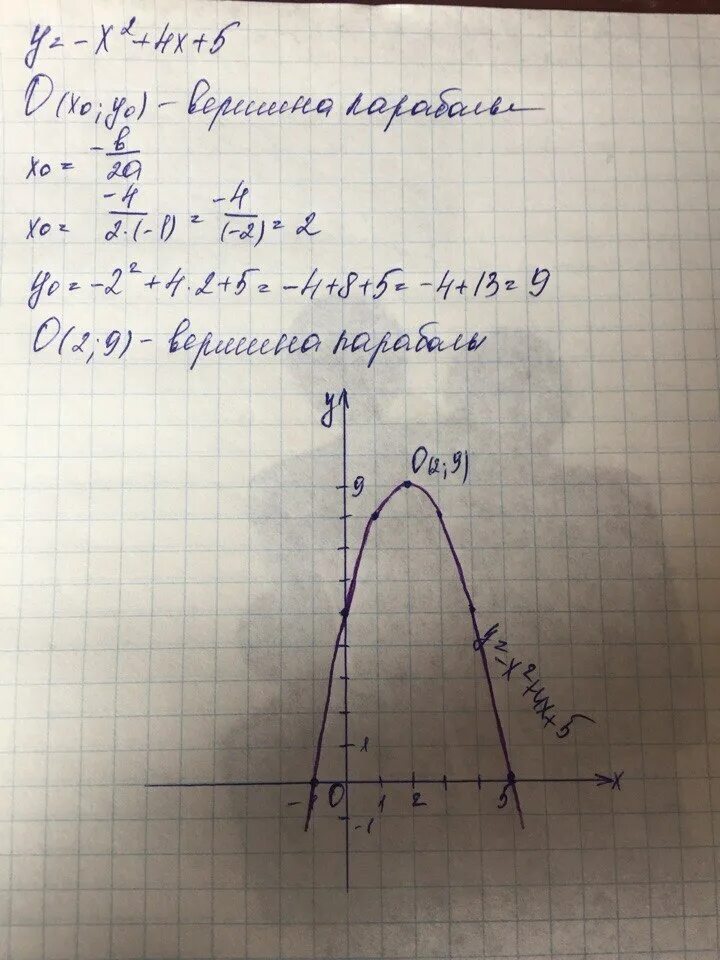 y = -x² + 4x + 5
O(x₀; y₀) - вершина парабалы
x₀ = -в/2a
x₀ = -4/2·(-1) = -4/(-2) = 2
y₀ = -2² + 4·2 + 5 = -4 + 8 + 5 = -4 + 13 = 9
O(2; 9) - вершина парабалы
y
O(2; 9)
9
y = -x² + 4x + 5
1
-1 0 1 2 5 x
-1